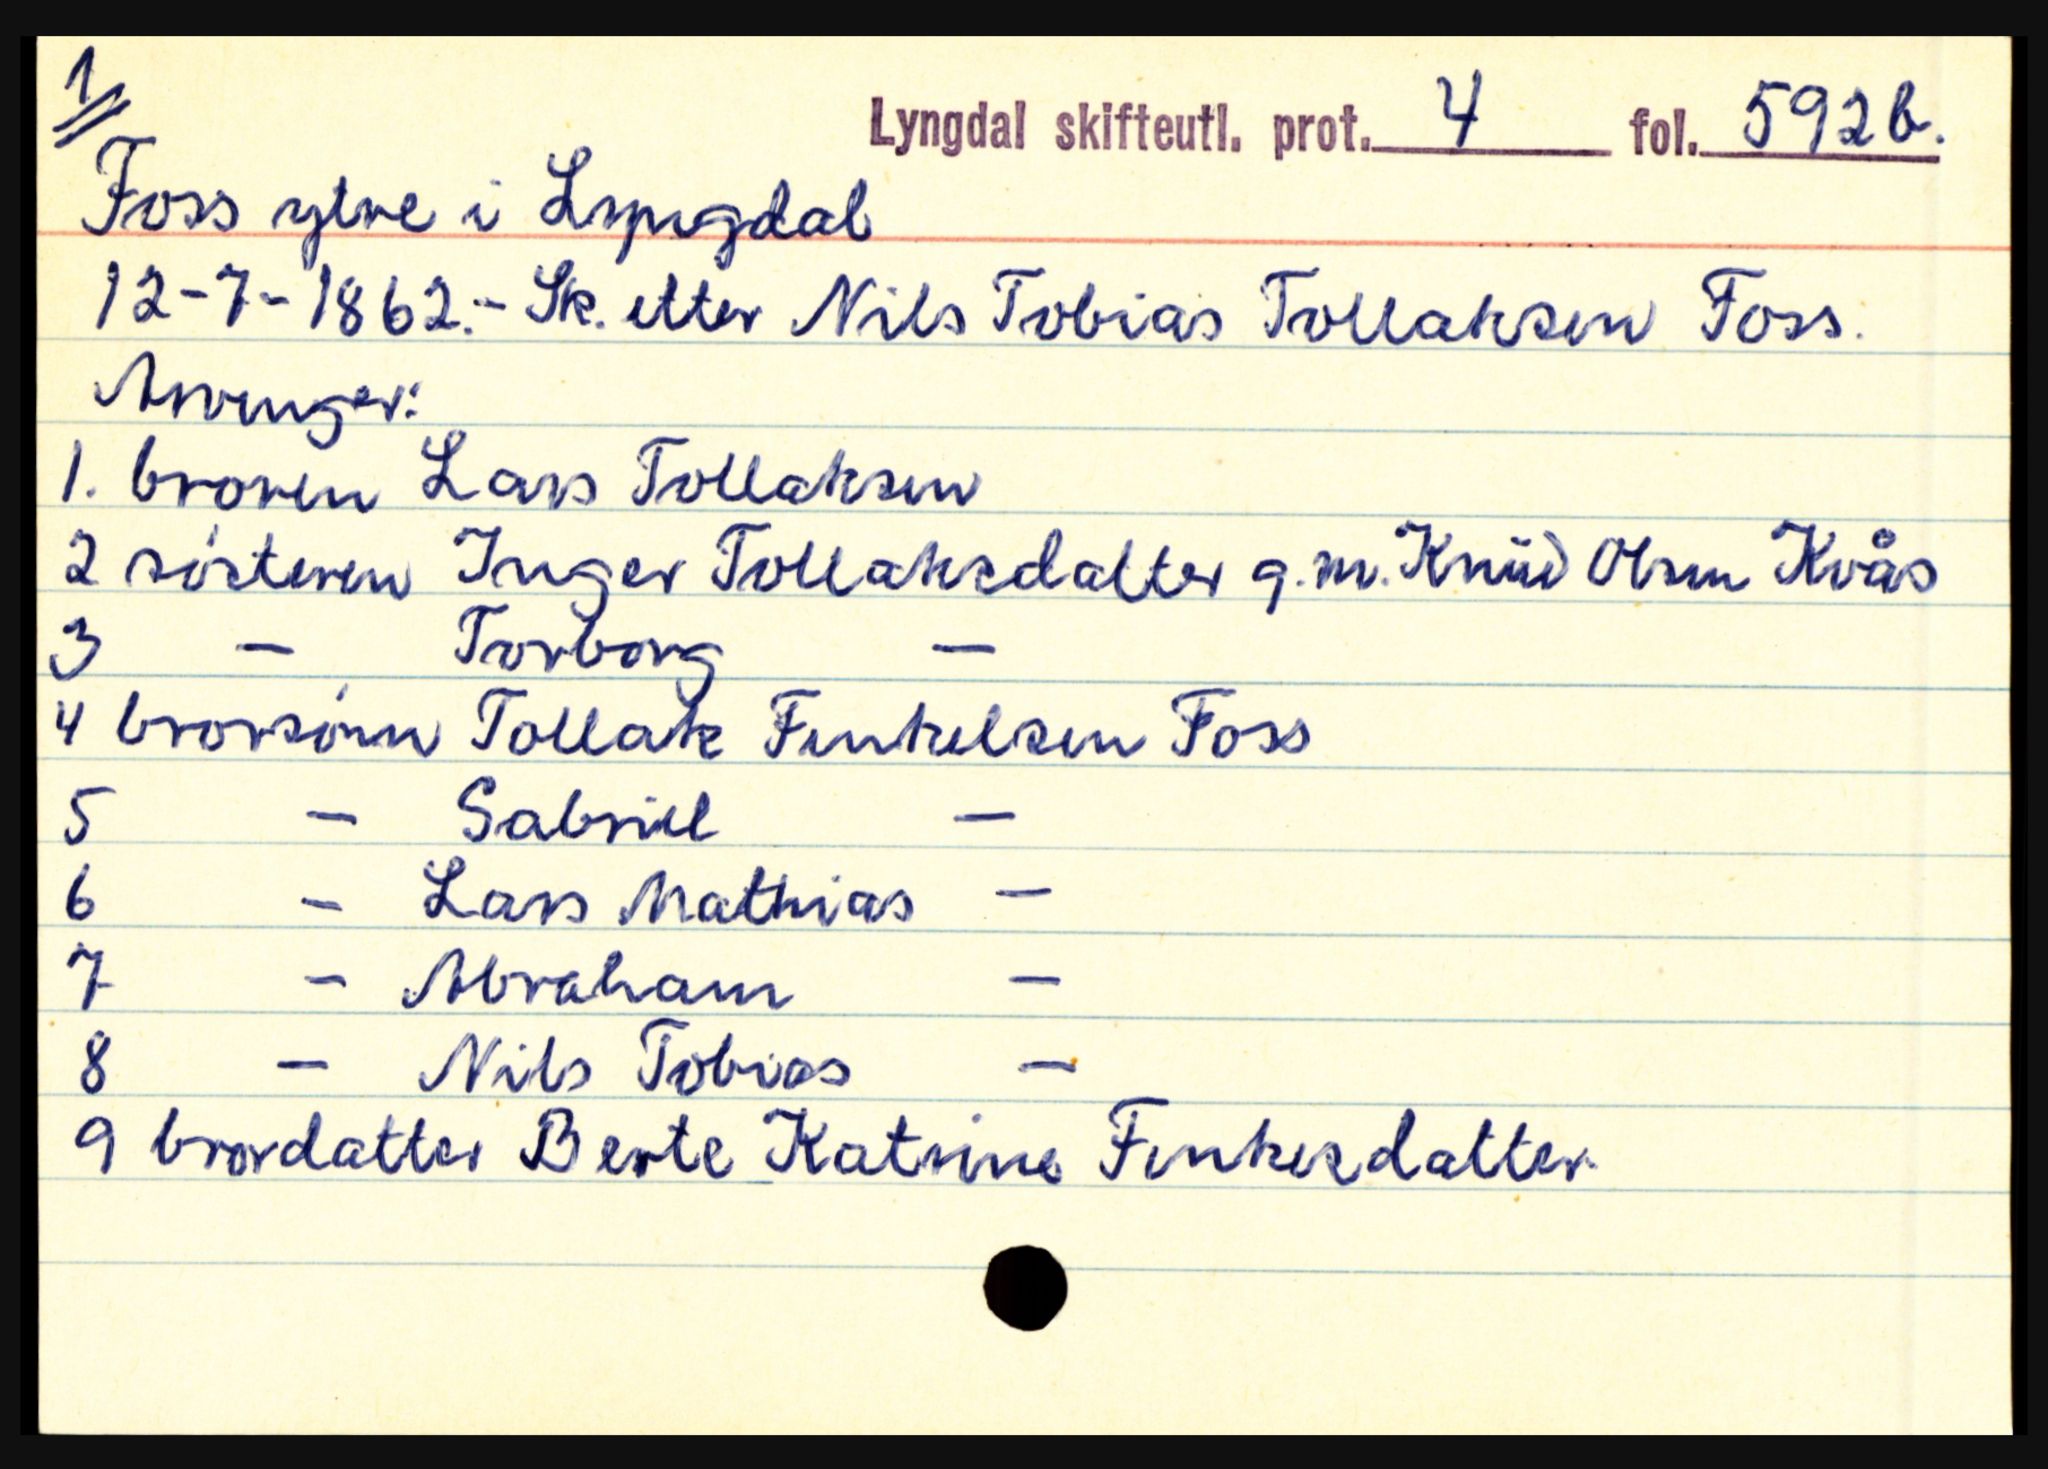 1
Lyngdal skifteutl. prot. 4 fol. 592b.
Foss ytre i Lyngdal
12-7-1862.- Sk. etter Nils Tobias Tollaksen Foss.
Arvinger:
1. broren Lars Tollaksen
2 sósteren Inger Tollaksdatter g.m. Knud Olsen Kvås
3 — Torborg —
4 brorsónn Tollak Finkelsen Foss
5 — Gabriel —
6 — Lars Mathias —
7 — Abraham —
8 — Nils Tobias —
9 brordatter Berte Katrine Finkesdatter